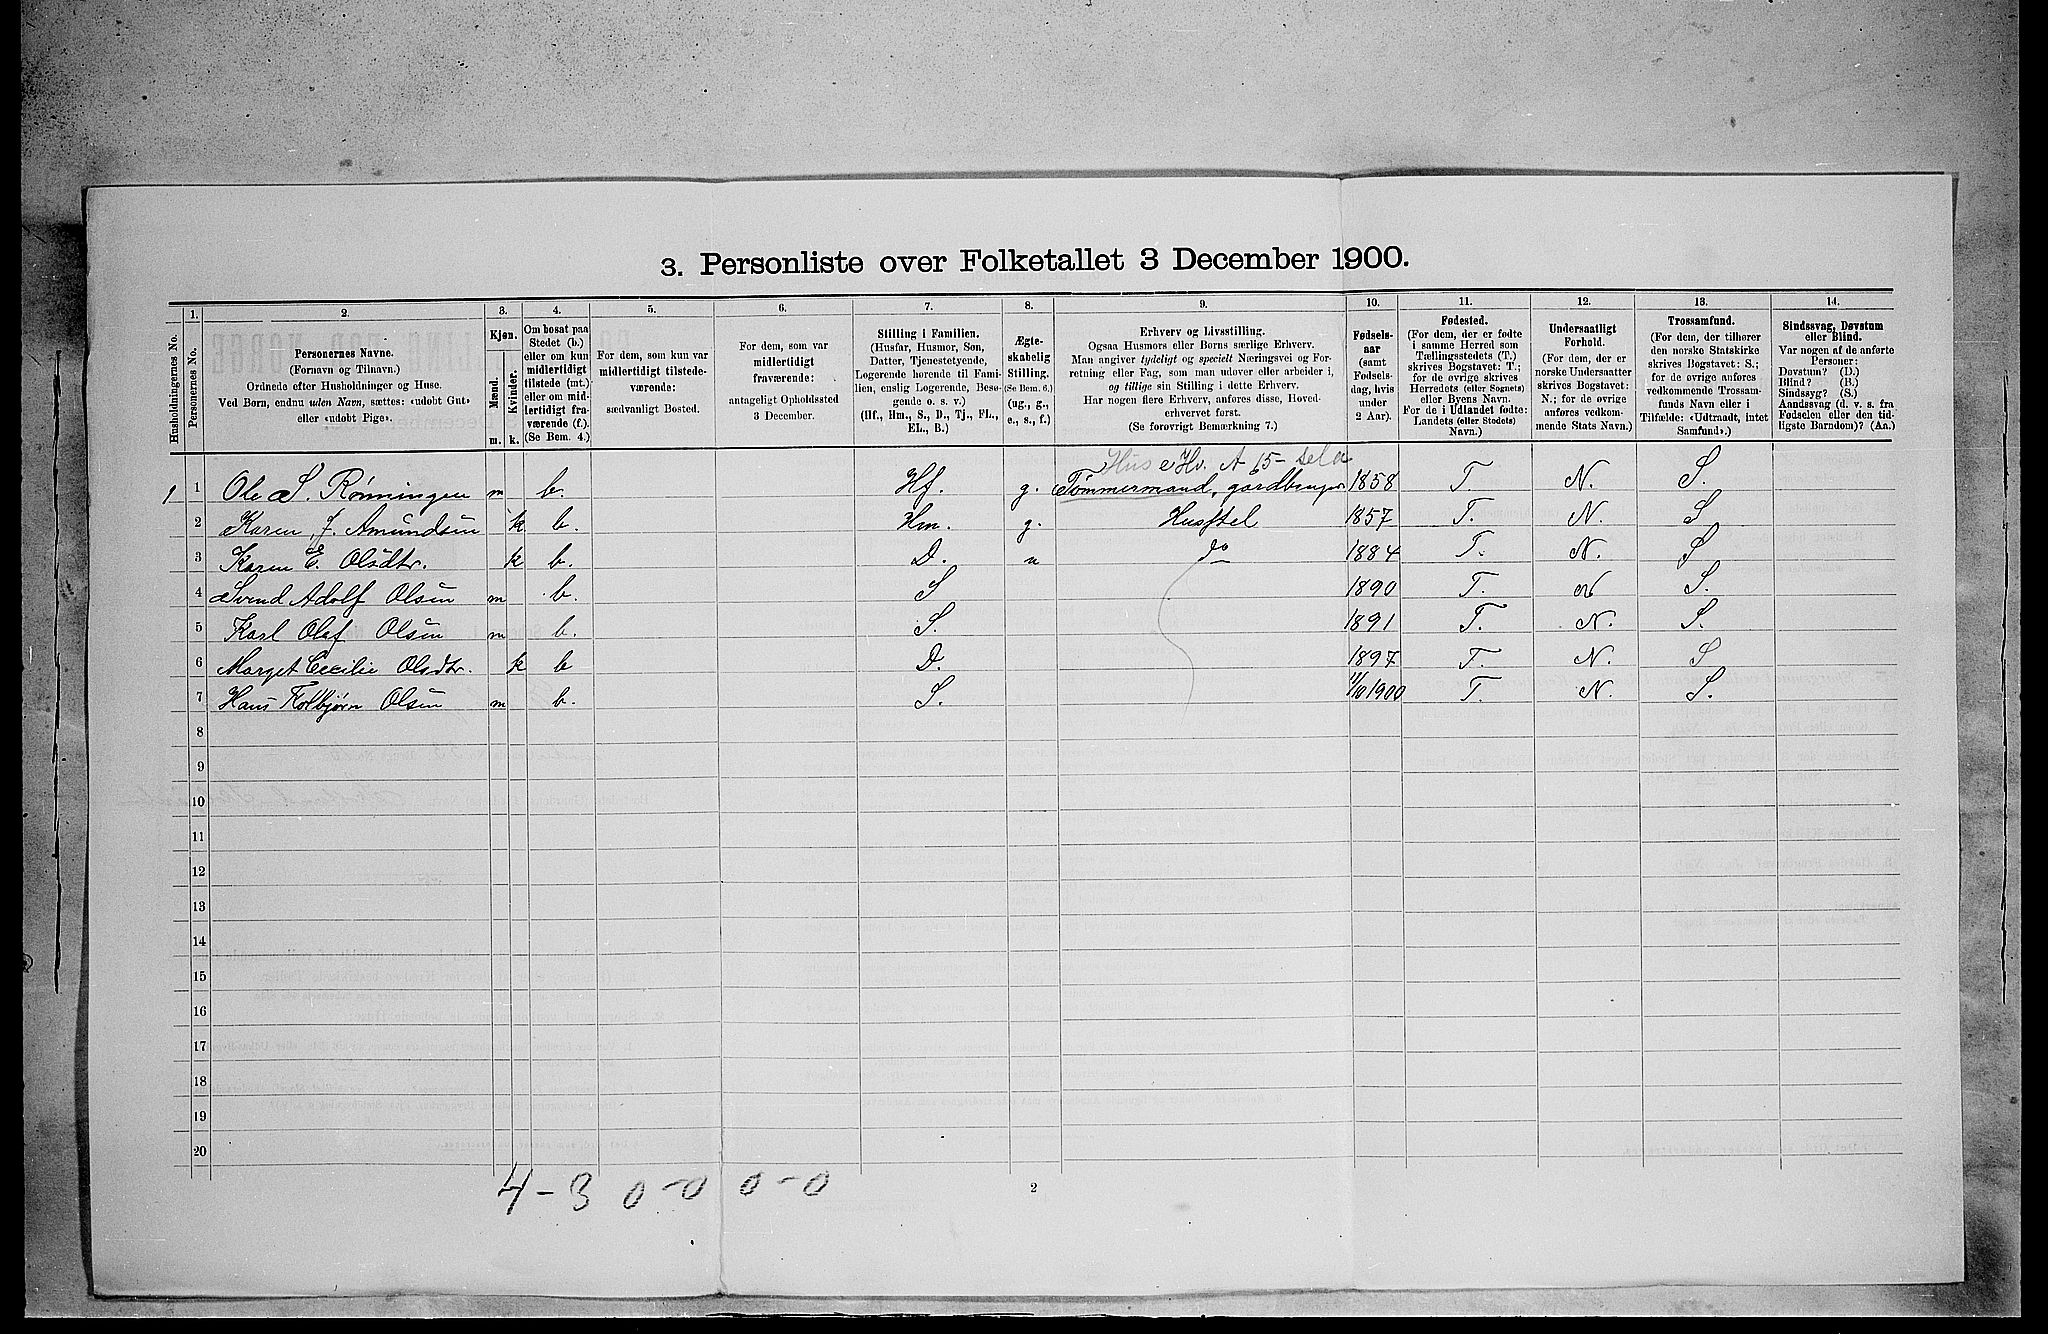 3. Personliste over Folketallet 3 December 1900.
Husholdningernes No.
1.
Personernes No.
2.
Personernes Navne.
(Fornavn og Tilnavn.)
Ordnede efter Husholdninger og Huse.
Ved Børn, endnu uden Navn, sættes: «udøbt Gut»
eller «udøbt Pige».
3.
Kjøn.
Mænd.
Kvinder.
m. k.
4.
Om bosat paa
Stedet (b.)
eller om kun
midlertidigt
tilstede (mt.)
eller om mid-
lertidigt fra-
værende (f.).
(Se Bem. 4.)
5.
For dem, som kun var
midlertidigt tilstede-
værende:
sædvanligt Bosted.
6.
For dem, som var
midlertidigt
fraværende:
antageligt Opholdssted
3 December.
7.
Stilling i Familien.
(Husfar, Husmor, Søn,
Datter, Tjenestetyende,
Logerende hørende til Fami-
lien, enslig Logerende, Besø-
gende o. s. v.)
(Hf., Hm., S., D., Tj., FL.,
EL., B.)
8.
Ægte-
skabelig
Stilling.
(Se Bem. 6.)
(ug., g.,
e., s., f.)
9.
Erhverv og Livsstilling.
Ogsaa Husmors eller Børns særlige Erhverv.
Man angiver tydeligt og specielt Næringsvei og For-
retning eller Fag, som man udøver eller arbeider i,
og tillige sin Stilling i dette Erhverv.
Har nogen flere Erhverv, anføres disse, Hoved-
erhvervet først.
(Se forøvrigt Bemærkning 7.)
10.
Fødsels-
aar
(samt
Fødsels-
dag, hvis
under
2 Aar).
11.
Fødested.
(For dem, der er fødte
i samme Herred som
Tællingsstedets (T.)
skrives Bogstavet: T.;
for de øvrige skrives
Herredets (eller Sognets)
eller Byens Navn.
For de i Udlandet fødte:
Landets (eller Stedets)
Navn.)
12.
Undersaatligt
Forhold.
(For dem, der er
norske Undersaatter
skrives Bogstavet:
N.; for de øvrige
anføres vedkom-
mende Stats Navn.)
13.
Trossamfund.
(For dem, der tilhører
den norske Statskirke
skrives Bogstavet: S.;
for de øvrige anføres
vedkommende Trossam-
funds Navn eller i
Tilfælde: «Udtraadt, intet
Samfund».)
14.
Sindssvag, Døvstum
eller Blind.
Var nogen af de anførte
Personer:
Døvstum? (D.)
Blind? (B.)
Sindssyg? (S.)
Aandssvag (d. v. s. fra
Fødselen eller den tid-
ligste Barndom)? (Aa.)
Hus
1 1 Ole S. Rønningen m b. Hf. g. Tømmermand, gardbruger 1858 T. N. S.
2 Karen J. Amundsen k b. Hm. g. Husstel 1857 T. N. S
3 Karen E. Olsdtr. k b. D. u do 1884 T. N. S
4 Svend Adolf Olsen m b. S 1890 T. N S.
5 Karl Olaf Olsen m b. S. 1891 T. N. S.
6 Marget Cecilie Olsdtr. k b D. 1897 T. N. S
7 Hans Kolbjørn Olsen m b. S. 11/10 1900 T. N. S.
8
9
10
11
12
13
14
15
16
17
18
19
20
4-3 0-0 0-0
2